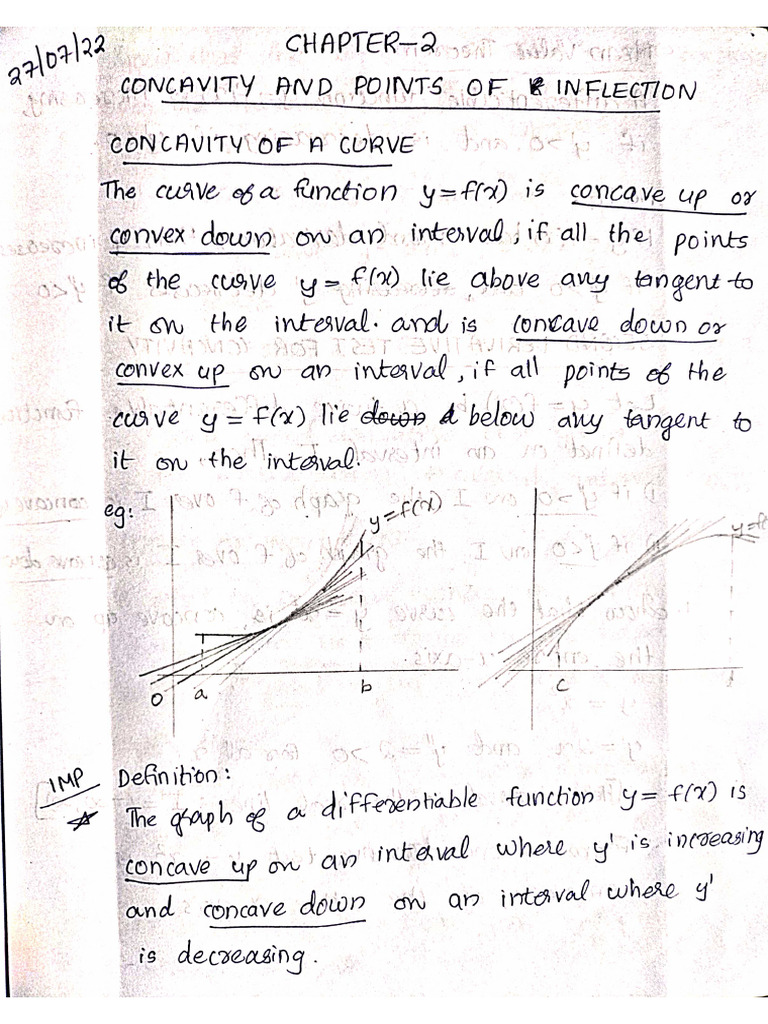 27/07/22
CHAPTER-2
CONCAVITY AND POINTS OF INFLECTION
CONCAVITY OF A CURVE
The curve of a function y=f(x) is concave up or
convex down on an interval, if all the points
of the curve y = f(x) lie above any tangent to
it on the interval. and is concave down or
convex up on an interval, if all points of the
curve y = f(x) lie down below any tangent to
it on the interval.
eg:
y=f(x)
0 a b
c
IMP Definition:
The graph of a differentiable function y = f(x) is
concave up on an interval where y' is increasing
and concave down on an interval where y'
is decreasing.